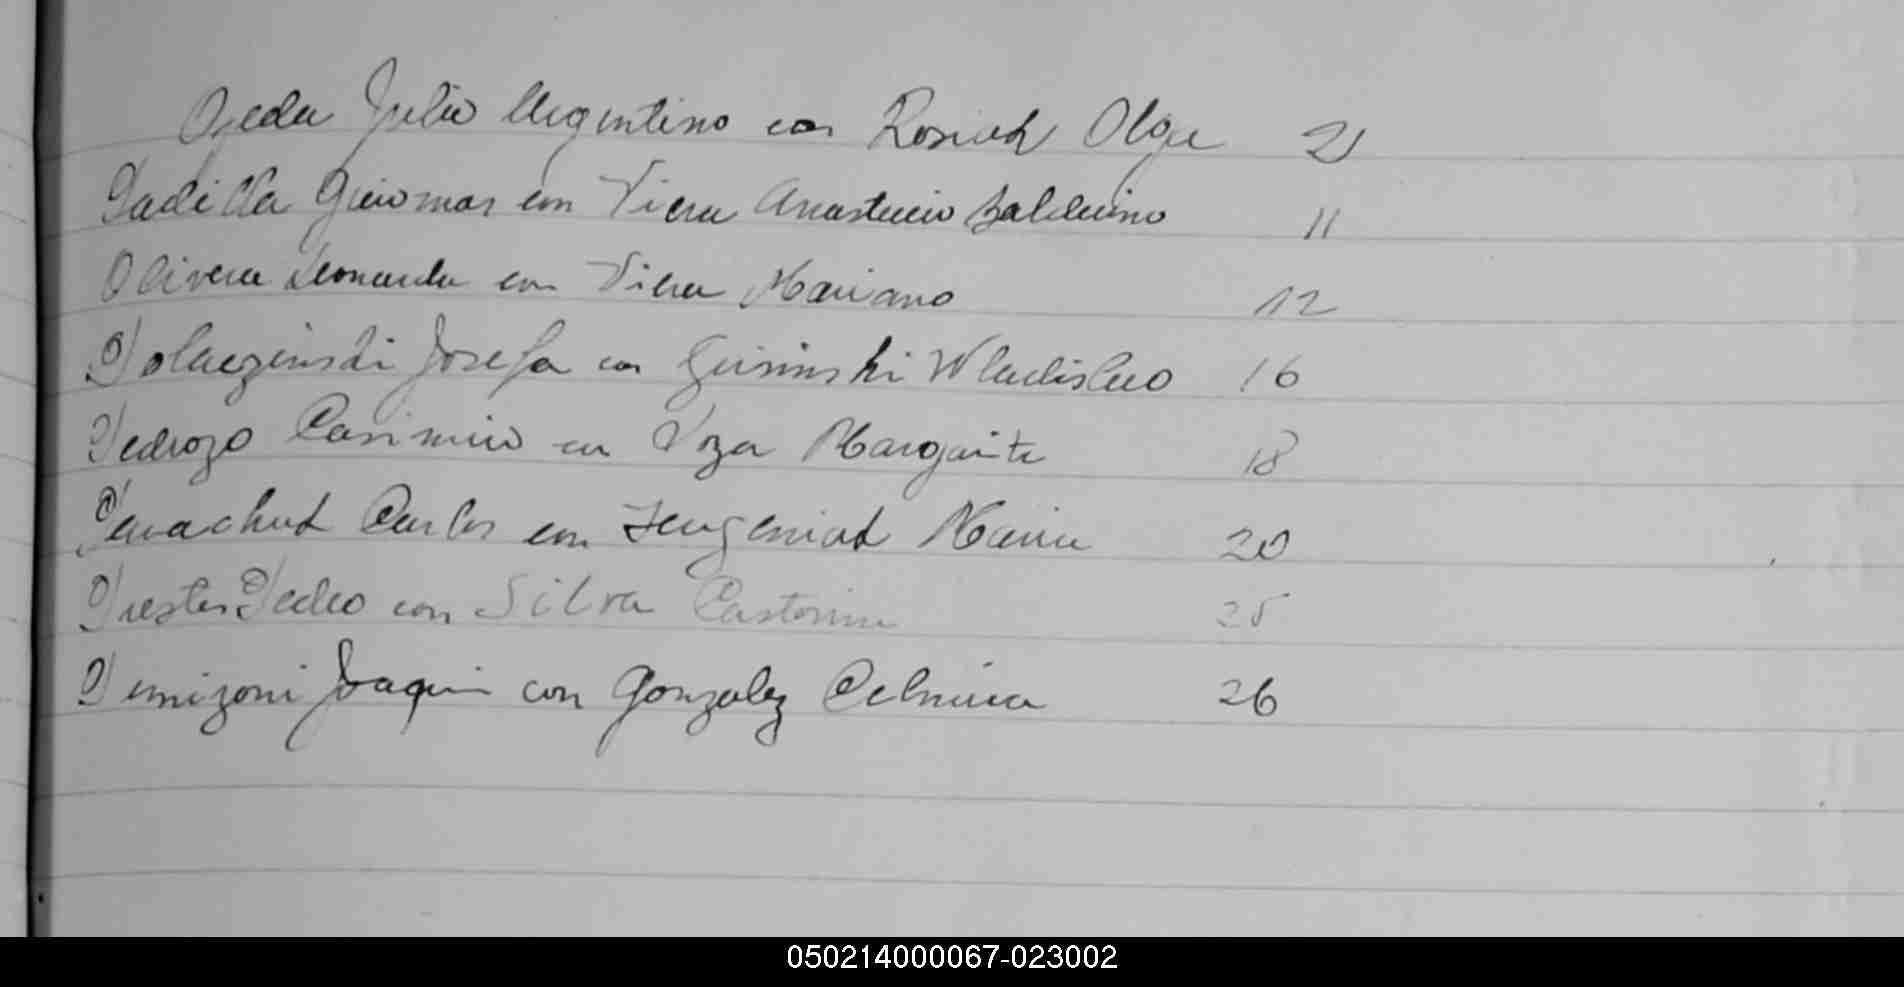 Ojeda Julio Argentino con Rosiak Olga 21
Padilla Guiomar con Viera Anastacio Balduino 11
Olivera Leonarda con Viera Mariano 12
Polaczinski Josefa con Wladislao 16
Pedrozo Casimiro con Voza Margarita 18
Carlos con Maria 20
Prestes Pedro con Silva Castorina 25
Joaquin con Gonzalez Celmira 26
050214000067-023002